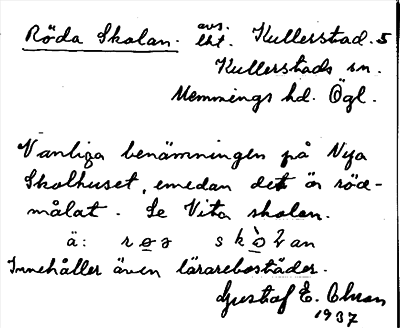 Röda Skolan. avs. lht. Kullerstad. 5
Kullerstads sn.
Memmings hd. Ögl.
Vanliga benämningen på Nya
Skolhuset, emedan det är röd-
målat. Se Vita skolan.
ä:
Innehåller även lärarebostäder.
Gustaf E. Ohrn
1937